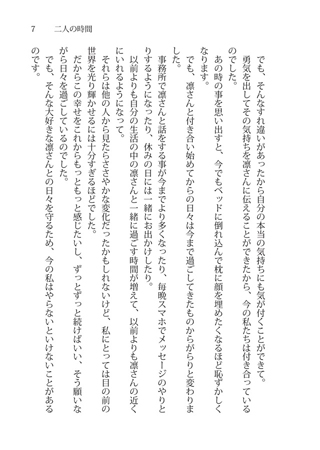 7　二人の時間
　でも、そんなすれ違いがあったから自分の本当の気持ちにも気が付くことができて。
　勇気を出してその気持ちを凛さんに伝えることができたから、今の私たちは付き合っている
のでした。
　あの時の事を思い出すと、今でもベッドに倒れ込んで枕に顔を埋めたくなるほど恥ずかしく
なります。
　でも、凛さんと付き合い始めてからの日々は今まで過ごしてきたものからがらりと変わりま
した。
　事務所で凛さんと話をする事が今までより多くなったり、毎晩スマホでメッセージのやりと
りするようになったり、休みの日には一緒にお出かけしたり。
　以前よりも自分の生活の中の凛さんと一緒に過ごす時間が増えて、以前よりも凛さんの近く
にいれるようになって。
　それらは他の人から見たらささやかな変化だったかもしれないけど、私にとっては目の前の
世界を光り輝かせるには十分すぎるほどでした。
　だからこの幸せをこれからもっともっと感じたいし、ずっとずっと続けばいい、そう願いな
がら日々を過ごしているのでした。
　でも、そんな大好きな凛さんとの日々を守るため、今の私はやらないといけないことがある
のです。